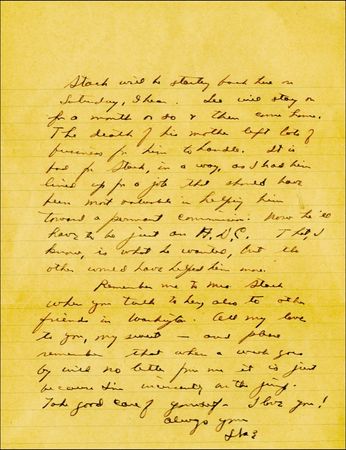 Stack will be starting back here on
Saturday, I hear. Lee will stay on
for a month or so & then come home.
The death of his mother left lots of
business for him to handle. It is
bad for Stack, in a way, as I had him
lined up for a job that should have
been most valuable in helping him
toward a permanent commission. Now he'll
have to be just an A.D.C. That, I
know, is what he wanted, but the
other would have helped him more.
Remember me to Mrs. Stack
when you talk to her, also to other
friends in Washington. All my love
to you, my sweet — and please
remember that when a week goes
by with no letter from me it is just
because I'm on the jump.
Take good care of yourself - I love you!
Always yours